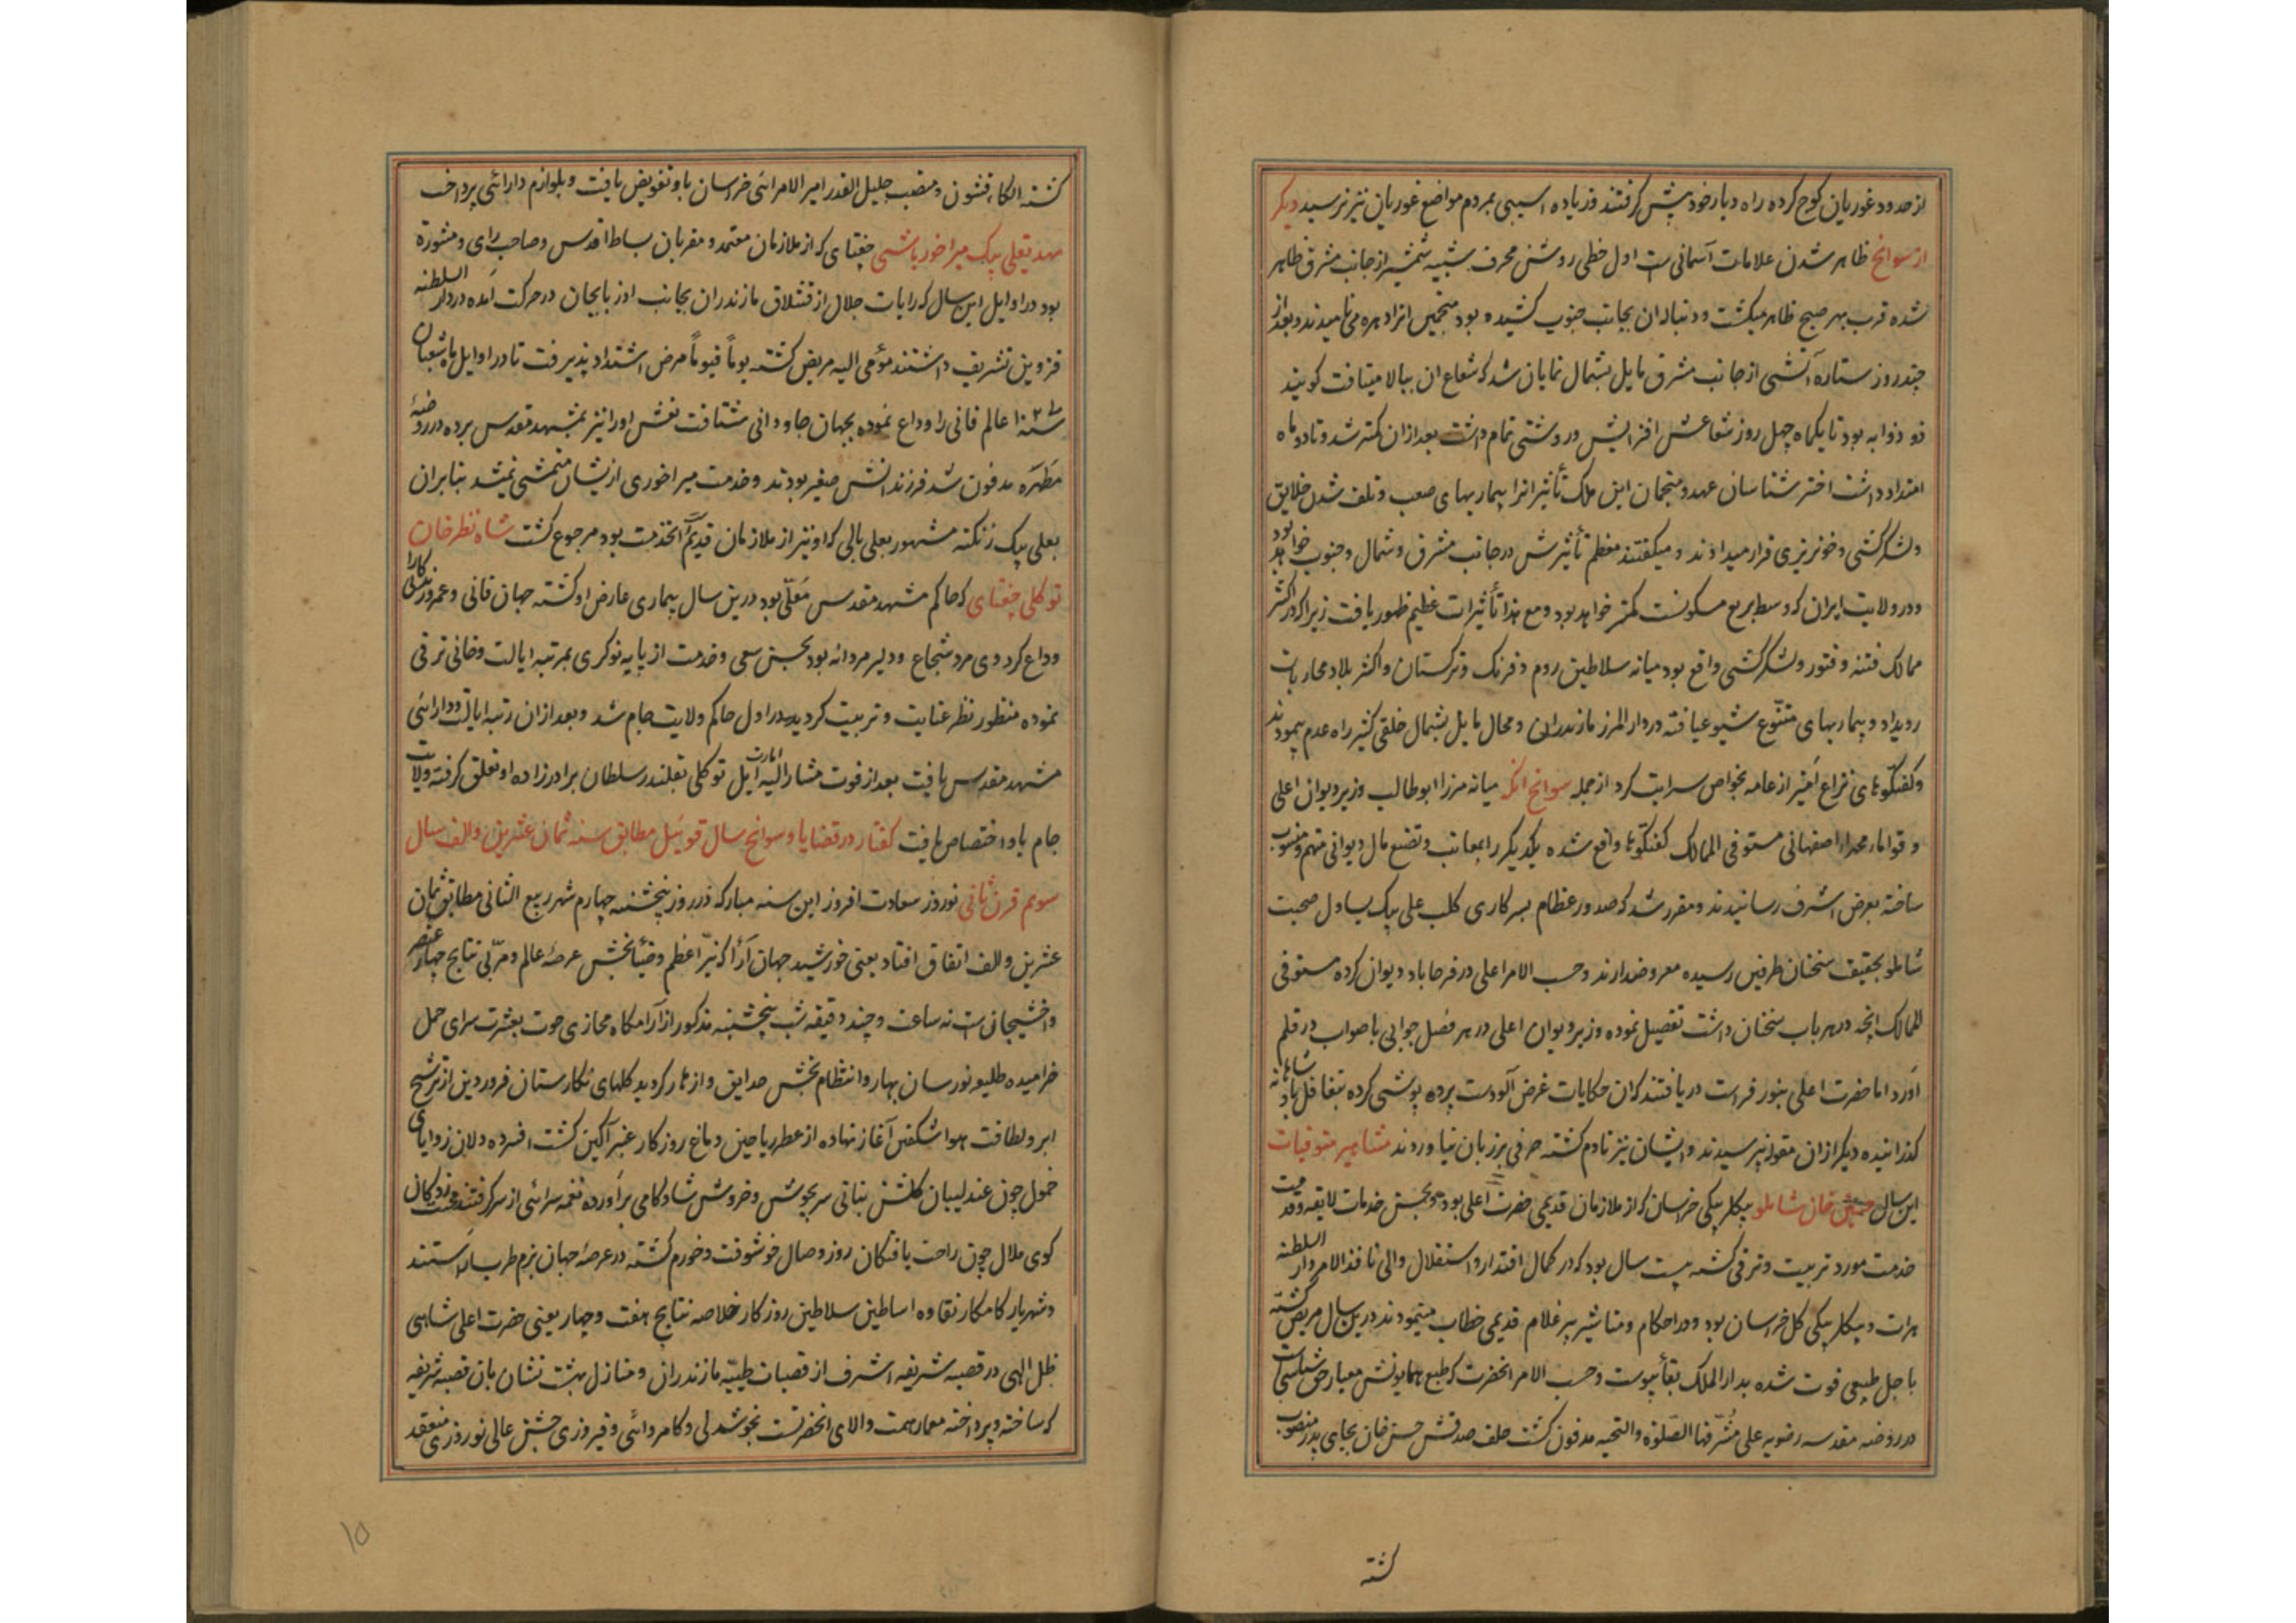 از حدود غوریان کوچ کرده راه دیار خود پیش گرفتند و زیاده اسیبی بمردم مواضع غوریان نیز نرسید دیکر
از سوانح ظاهر شدن علامات آسمانی ست اول خطی روشن محرف شبیه شمشیر از جانب مشرق ظاهر
شده قرب بهر صبح ظاهر میکشت و دنباله ان بجانب جنوب کشیده بود منجمین انرا دهره می نامیدند و بعد از
چند روز ستاره آتشی از جانب مشرق مایل بشمال نمایان شد که شعاع ان ببالا میتافت کویند
ذو ذوابه بود تا یکماه چهل روز شعاعش افزایش در وشتی تمام داشت بعد از ان کمتر شد و تا دو ماه
امتداد داشت اختر شناسان عهد و منجمان این ملک تأثیر انرا بیماریهای صعب و تلف شدن خلایق
و لشکر کشی و خونریزی قرار میدادند و میکفتند معظم تأثیرش در جانب مشرق و شمال و جنوب خواهد بود
و در ولایت ایران که وسط بریع مسکونست کمتر خواهد بود و مع هذا تأثیرات عظیم ظهور یافت زیرا که در اکثر
ممالک فتنه و فتور و لشکر کشی واقع بود میانه سلاطین روم و فرنک و ترکستان و اکثر بلاد محاربات
رویداد و بیماریهای متنوع شیوع یافته در دار المرز مازندران و محال مایل بشمال خلقی کثیر راه عدم پیمودند
و کفتکوهای نزاع آمیز از عامه بخواص سرایت کرد از جمله سوانح انکه میانه مرزا ابوطالب وزیر دیوان اعلی
و قواما محمدا اصفهانی مستوفی الممالک کفتکوها واقع شده یکدیکر را بمعایب و تضیع مال دیوانی متهم و منسوب
ساخته بعرض اشرف رسانیدند و مقرر شد که صدور عظام بسرکاری کلب علی بیک یساول صحبت
شاملو بحقیقت سخنان طرفین رسیده معروضدارند و حسب الامر اعلی در فرحاباد دیوان کرده مستوفی
الممالک انچه در هر باب سخنان داشت تفصیل نموده وزیر دیوان اعلی در هر فصل جوابی باصواب در قلم
آورد اما حضرت اعلی بنور فراست دریافتند که ان حکایات غرض آلودست پرده پوشی کرده بتغافل پادشاهانه
کذرانیده دیکر از ان مقوله نپرسیدند و ایشان نیز نادم کشته حرفی بر زبان نیاوردند مشاهیر متوفیات
این سال حسین خان شاملو بیکلربیکی خراسان که از ملازمان قدیمی حضرت اعلی بود و بحسن خدمات لایقه و قدمت
خدمت مورد تربیت و ترقی کشته بیست سال بود که در کمال اقتدار و استقلال والی نافذ الامر دار السلطنه
هرات و بیکلربیکی کل خراسان بود و در احکام و مناشیر پیر غلام قدیمی خطاب مینمودند درین سال مریض کشته
باجل طبیعی فوت شده بدار الملک بقا پیوست و حسب الامر انحضرت که طبع همایونش معیار حق شناسی است
در روضه مقدسه رضویه علی مشرفها الصلوة و التحیه مدفون کشت خلف صدقش حسن خان بجای پدر منصوب
کشته
کشته الکاء قشون و منصب جلیل القدر امیر الامرائی خراسان باو تفویض یافت و بلوازم دارائی پرداخت
مهدیقلی بیک میراخور باشی جغتای که از ملازمان معتمد و مقربان بساط اقدس و صاحب رای و مشورة
بود در اوایل این سال که رایات جلال از قشلاق مازندران بجانب اوزبایجان در حرکت آمده در دار السلطنه
قزوین تشریف داشتند مؤمی الیه مریض کشته یوماً فیوماً مرض اشتداد پذیرفت تا در اوایل ماه شعبان
سنه ۱۰۲۷ عالم فانی را وداع نموده بجهان جاودانی شتافت نعش او را نیز بمشهد مقدس برده در روضهٔ
مطهره مدفون شد فرزندانش صغیر بودند و خدمت میراخوری از یشان متمشی نمیشد بنابران
بعلی بیک زنکنه مشهور بعلی بالی که او نیز از ملازمان قدیم الخدمت بود مرجوع کشت شاه نظر خان
توکلی جغتای که حاکم مشهد مقدس معلی بود درین سال بیماری عارض او کشته جهان فانی و عمر
وداع کرد وی مرد شجاع و دلیر مردانه بود بحسن سعی و خدمت از پایه نوکری بمرتبه ایالت و خانی ترقی
نموده منظور نظر عنایت و تربیت کردیده در اول حاکم ولایت جام شد و بعد از ان رتبه ایالت و دارائی
مشهد مقدس یافت بعد از فوت مشار الیه امارت ایل توکلی بقلندر سلطان برادرزاده او تعلق کرفته ولایت
جام باو اختصاص یافت کفتار در قضایا و سوانح سال قوی‌ئیل مطابق سنه ثمان عشرین و الف سال
سویم قرن ثانی نوروز سعادت افروز این سنه مبارکه در روز پنجشنبه چهارم شهر ربیع الثانی مطابق ثمان
عشرین و الف اتفاق افتاد یعنی خورشید جهان آرا که نیّر اعظم و ضیا بخش عرصهٔ عالم و مربّی نتایج چهار عنصر
و اخشیجانی ست نه ساعت و چند دقیقه شب پنجشنبه مذکور از آرامکاه مجازی حوت بعشرت سرای حمل
خرامیده طلیعه نورسان بهار و انتظام بخش حدایق و ازهار کردید کلهای نکارستان فروردین از ترشح
ابر و لطافت هوا شکفتن آغاز نهاده از عطر ریاحین دماغ روزکار عنبر آکین کشت افسرده دلان زوایای
خمول چون عندلیبان کلشن بنانی سر بجوش و خروش شادکامی برآورده نغمه سرائی از سر کرفتند
کوی ملال چون راحت یافتکان روز وصال خوشوقت و خورم کشته در عرصهٔ جهان بزم طرب آراستند
و شهریار کامکار نقاوه اساطین سلاطین روزکار خلاصه نتایج هفت و چهار یعنی حضرت اعلی شاهی
ظل الهی در قصبه شریفه اشرف از قصبات طیبّه مازندران و منازل بهشت نشان بان قصبه شریفه
که ساخته و پرداخته معمار همت والای انحضرتست بخوشدلی و کامروائی و فیروزی جشن عالی نوروزی منعقد
۱۵